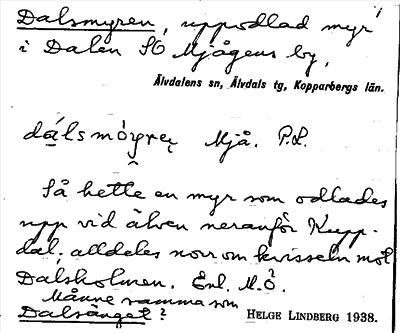 Dalsmyren, uppodlad myr
i Dalen SO Mjågens by,
Älvdalens sn, Älvdals tg, Kopparbergs län.
Mjå. P.L.
Så hette en myr som odlades
upp vid älven neranför Kupp-
dal, alldeles norr om kvisseln mot
Dalsholmen. Enl. M.Ö.
Månne samma som
Dalsänget?
HELGE LINDBERG 1938.